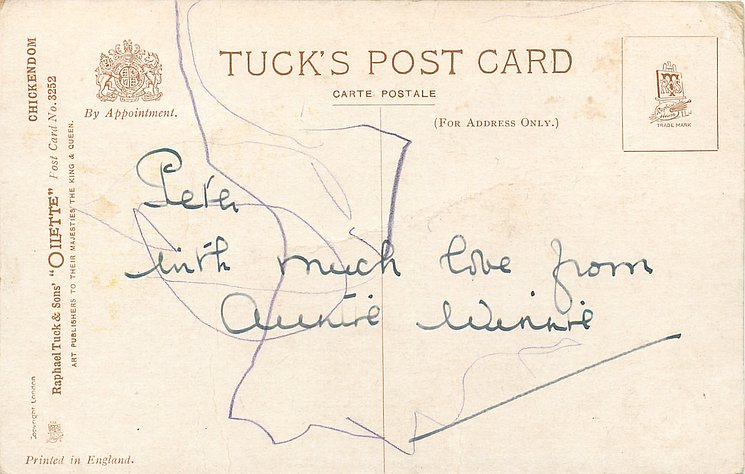 TUCK'S POST CARD
CARTE POSTALE
(FOR ADDRESS ONLY.)
By Appointment.
TRADE MARK
CHICKENDOM
Raphael Tuck & Sons' "OILETTE" Post Card No. 3252
ART PUBLISHERS TO THEIR MAJESTIES THE KING & QUEEN.
Copyright London
Peter
with much love from
Auntie Winnie
Printed in England.